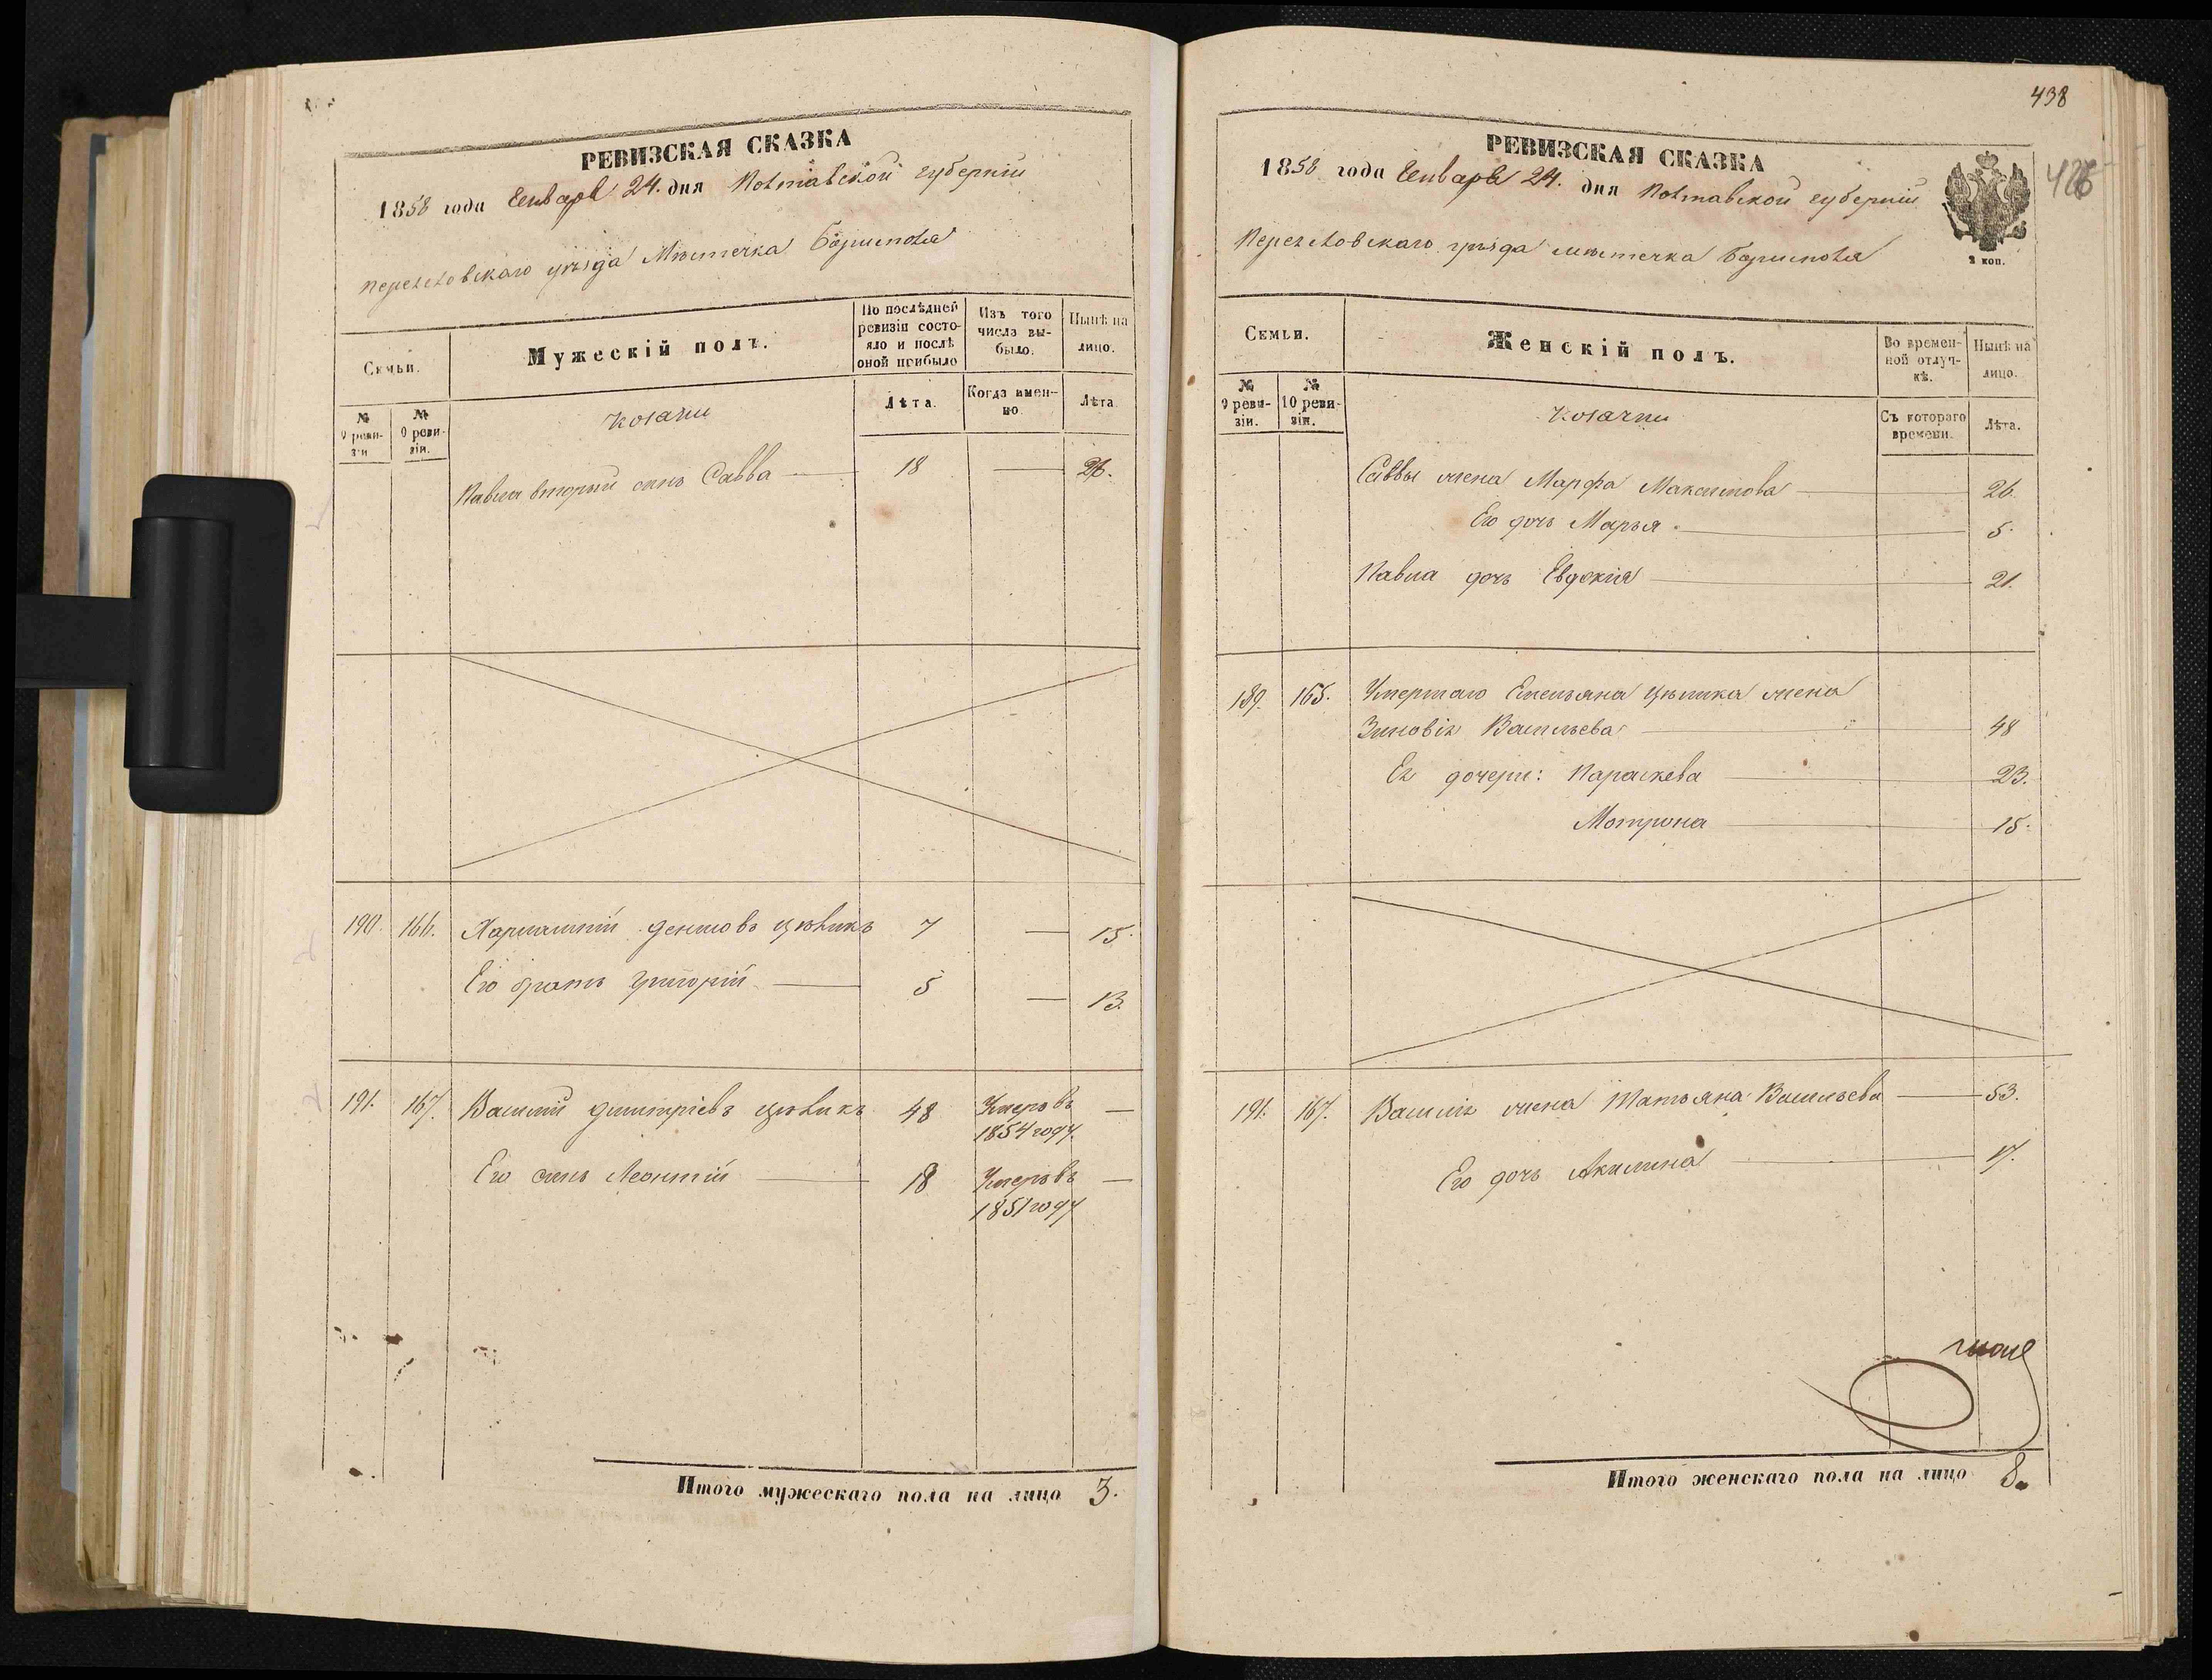 РЕВИЗСКАЯ СКАЗКА
1858 года Генваря 24. дня Полтавской губерніи
Переяловскаго уѣзда Мѣстечка Борисполя
Семьи.
Мужескій полъ.
По послѣдней ревизіи состояло и послѣ оной прибыло
Изъ того числа выбыло.
Нынѣ на лицо.
№ 9 ревизіи
№ 10 ревизіи.
Лѣта.
Когда именно
Лѣта
Козаки
Павла вторый сынъ Савва 18 — 26.
190. 166. Харлампій Денисовъ Цѣликъ 7 — 15.
Его братъ Григорій 5 — 13.
191. 167. Василій Дмитріевъ Цѣликъ 48 Умеръ въ 1854 году. —
Его сынъ Леонтій 18 Умеръ въ 1851 году —
Итого мужескаго пола на лицо 3.
438
426
РЕВИЗСКАЯ СКАЗКА
1858 года Генваря 24. дня Полтавской губерніи
Переяловскаго уѣзда мѣстечка Борисполя
2 коп.
Семьи.
Женскій полъ.
Во временной отлучкѣ.
Нынѣ на лицо.
№ 9 ревизіи.
№ 10 ревизіи.
Съ котораго времени.
Лѣта.
Козачки
Саввы жена Марфа Максимова 26.
Его дочь Марья 5.
Павла дочь Евдокія 21.
189. 165. Умершаго Емельяна Цѣлика жена
Зиновія Васильева 48
Ея дочери: Параскева 23.
Мотрона 15.
191. 167. Василія жена Татьяна Васильева 53.
Его дочь Акилина 17.
Итого женскаго пола на лицо 8.